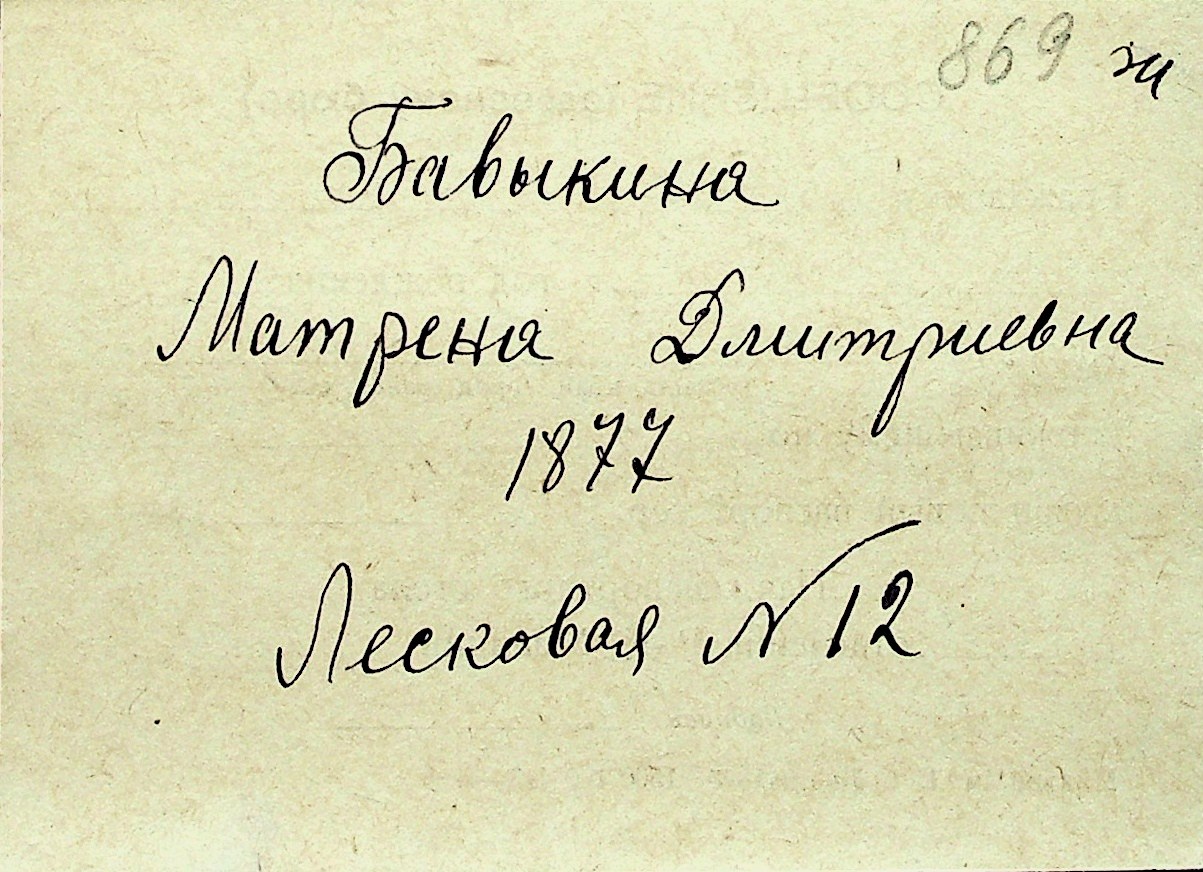 869
Бавыкина
Матрена Дмитриевна
1877
Лесковая № 12